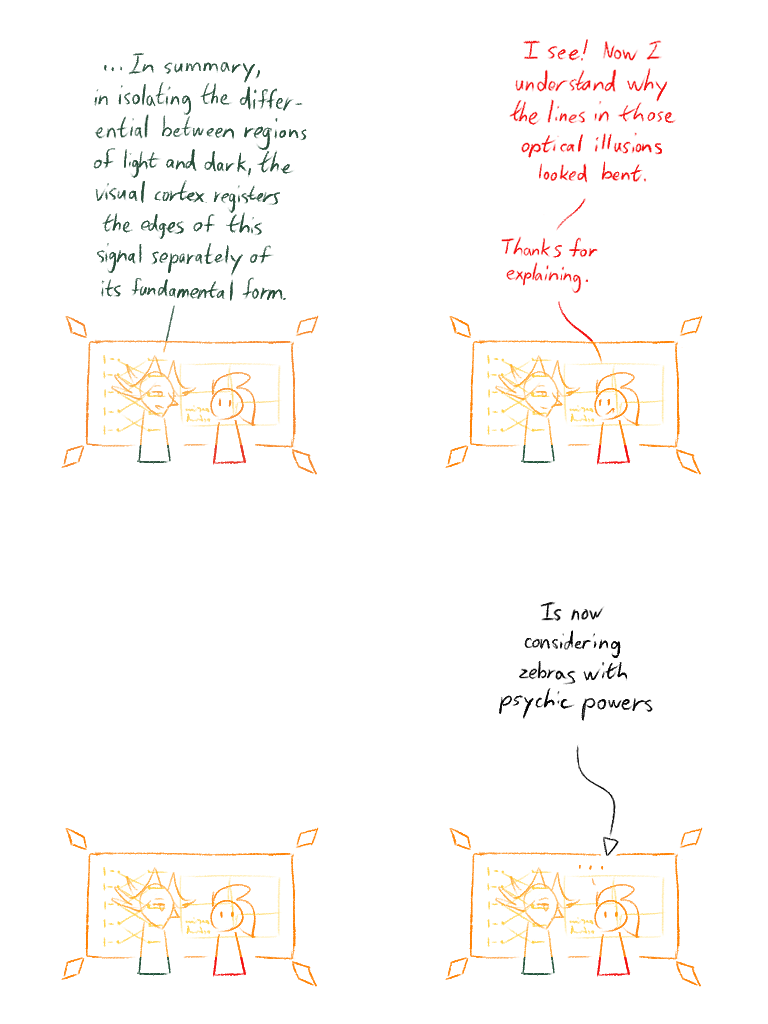 ... In summary,
in isolating the differ-
ential between regions
of light and dark, the
visual cortex registers
the edges of this
signal separately of
its fundamental form.
I see! Now I
understand why
the lines in those
optical illusions
looked bent.
Thanks for
explaining.
Is now
considering
zebras with
psychic powers
...